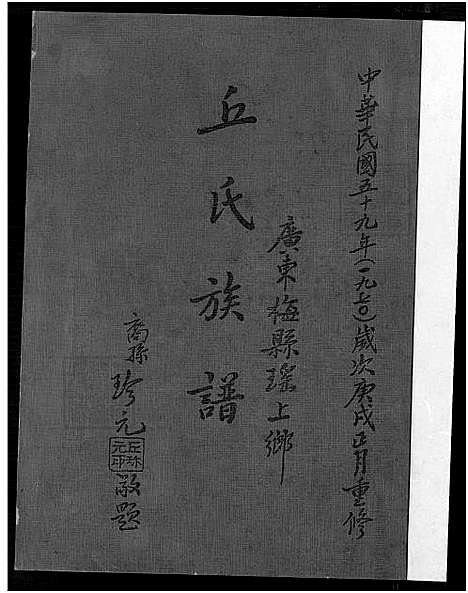 中華民國五十九年(一九七〇)歲次庚戌正月重修
廣東梅縣瑤上鄉
丘氏族譜
裔孫珍元敬題
丘珎元印